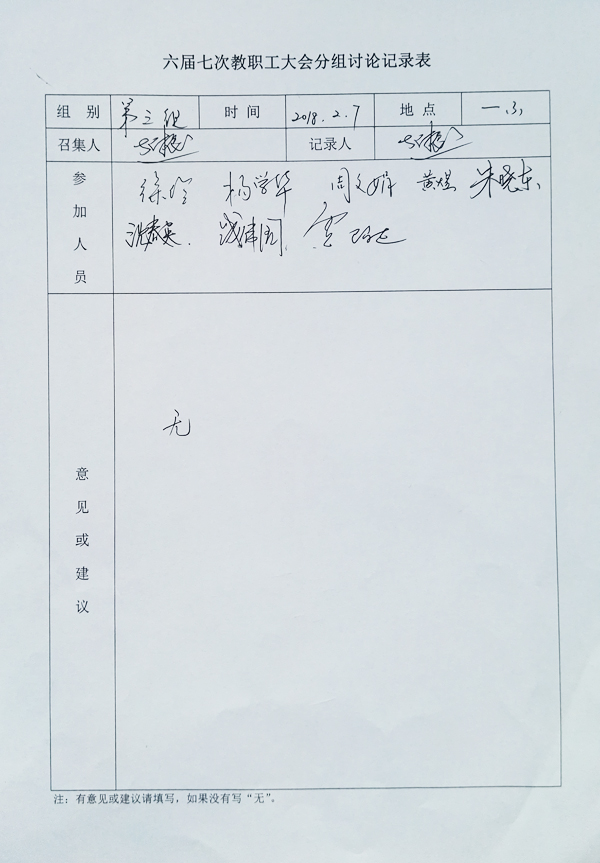 六届七次教职工大会分组讨论记录表
组 别 第三组 时 间 2018.2.7 地 点 一.
召集人 记录人
参加人员 徐 杨学华 周文娟 黄煜 朱晓东
沈春英. 钱伟国
意见或建议 无
注：有意见或建议请填写，如果没有写“无”。